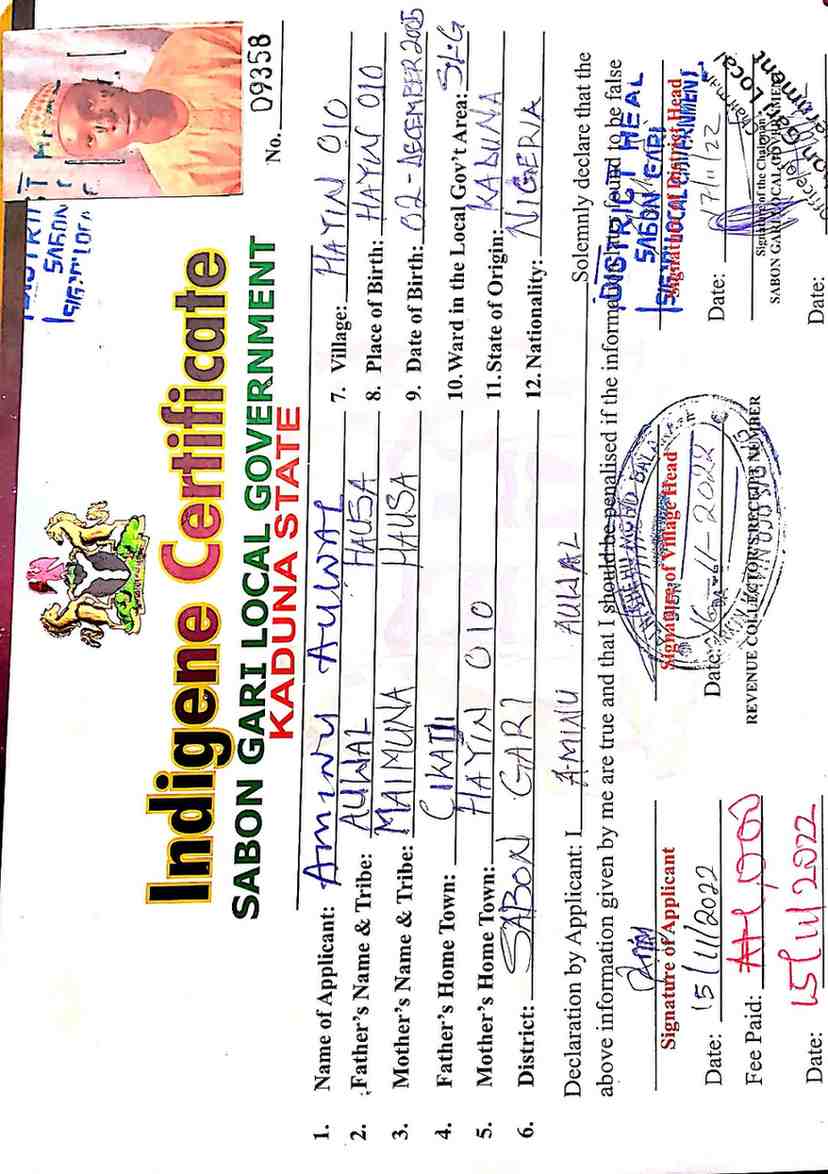 No. 09358
Indigene Certificate
SABON GARI LOCAL GOVERNMENT
KADUNA STATE
1. Name of Applicant: Aminu Auwal
2. Father's Name & Tribe: AUWAL HAUSA
3. Mother's Name & Tribe: MAIMUNA HAUSA
4. Father's Home Town:
5. Mother's Home Town: HAYIN OJO
6. District: SABON GARI
7. Village: HAYIN OJO
8. Place of Birth: HAYIN OJO
9. Date of Birth: 02-DECEMBER 2005
10. Ward in the Local Gov't Area: S/G
11. State of Origin: KADUNA
12. Nationality: NIGERIA
Declaration by Applicant: I AMINU AUWAL Solemnly declare that the
above information given by me are true and that I should be penalised if the information is later found to be false
Signature of Applicant
Date: 15/11/2022
Fee Paid:
Date: 15/11/2022
Signature of Village Head
Date: 16-11-2022
REVENUE COLLECTOR'S RECEIPT NUMBER
DISTRICT HEAD
SABON GARI
LOCAL GOVERNMENT
Signature of District Head
Date: 17/11/22
Signature of the Chairman
SABON GARI LOCAL GOVERNMENT
Date: